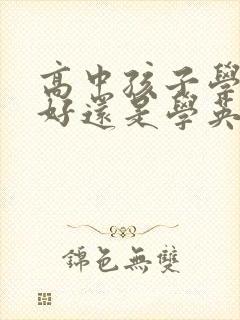 高中孩子學
好還是學英
錦色無雙